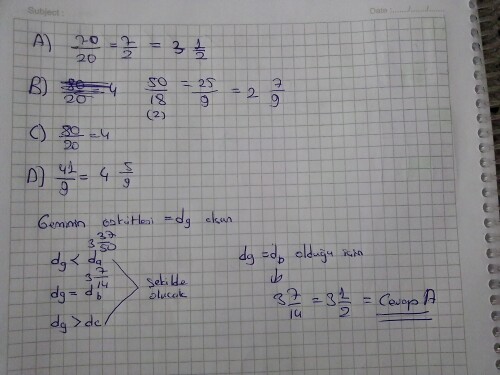 Subject :
Date :
A) 70/20 = 7/2 = 3 1/2
B) 80/20 4 50/18 (2) = 25/9 = 2 7/9
C) 80/20 = 4
D) 41/9 = 4 5/9
Geminin özkütlesi = dg olsun
3 37/50
dg < da
3 7/14
dg = db
dg > dc
Şekilde olucak
dg = db olduğu için
3 7/14 = 3 1/2 = Cevap A